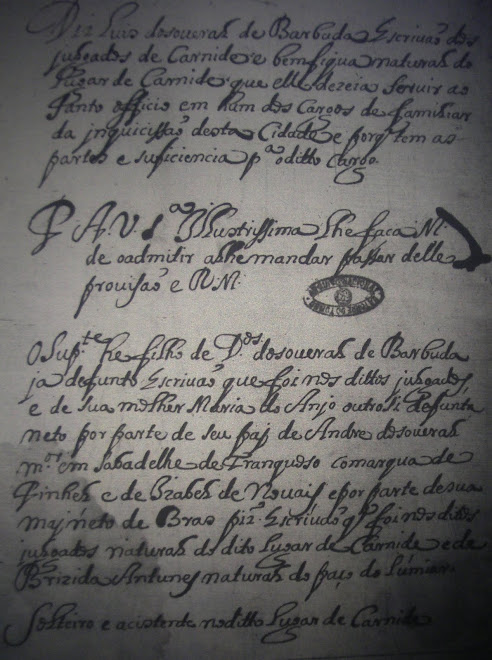 Diz Luis do souerah de Barbuda Escriuaõ dos
julgados de Carnide e bemfiqua natural do
Lugar de Carnide que elle dezeia seruir ao
Santo officio em hum dos Cargos de familiar
da jnquicissaõ desta Cidade e porqᵗ tem as
partes e suficiencia pᵃ o ditto Cargo.
P. A. V. Sᵃ Illustrissima lhe faca M.
de o admitir a lhe mandar passar delle
prouisaõ e R.M.
O Supᵗᵉ he filho de Dᵒˢ do souerah de Barbuda
ja defunto Escriuaõ que foi nos dittos julgados,
e de sua molher Maria do Anjo outrossi defunta
neto por parte de seu paj de Andre do souerah
mᵒʳ em sabadelhe de Tranquoso comarqua de
Pinhel e de Izabel de Nouais e por parte de sua
maj neto de Bras piz. Escriuaõ q̃ foi nos ditos
julgados natural do dito Lugar de Carnide e de
Brizida Antunes natural do paço do Lumiar.
Solteiro e acistente no ditto Lugar de Carnide